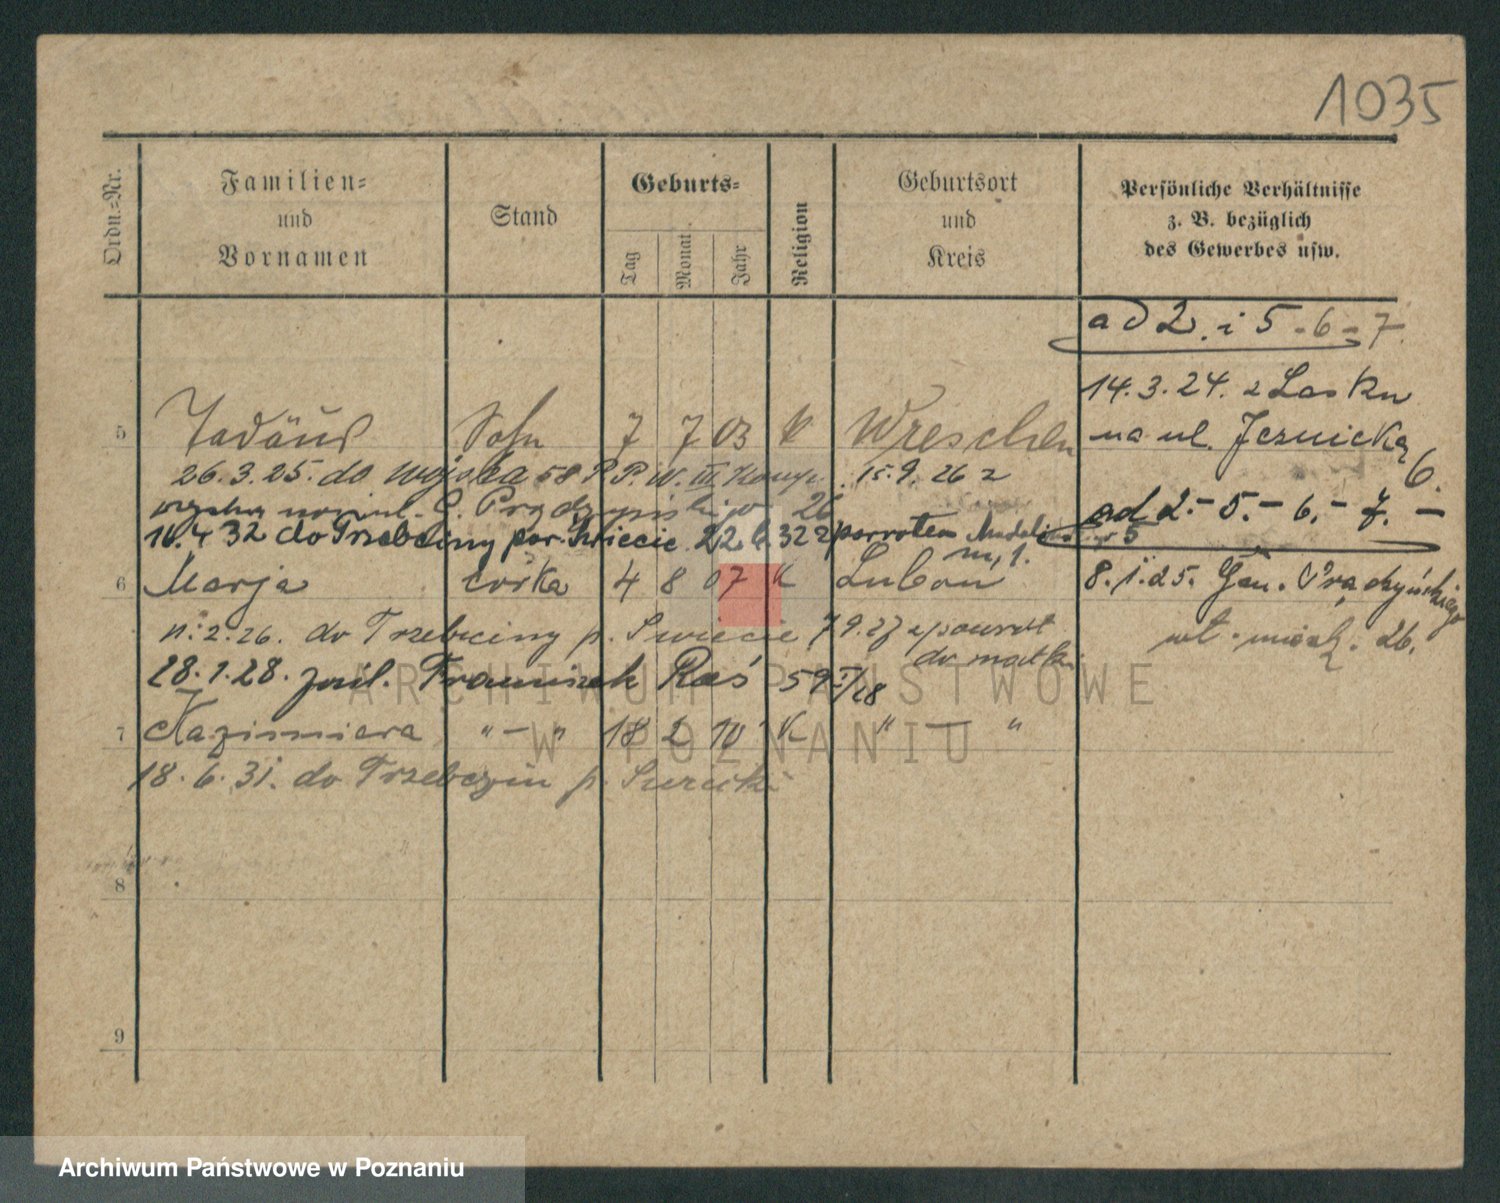 1035
Ordn.-Nr.
Familien-
und
Vornamen
Stand
Geburts-
Tag
Monat
Jahr
Religion
Geburtsort
und
Kreis
Persönliche Verhältnisse
z. B. bezüglich
des Gewerbes usw.
ad 2. i 5 - 6 - 7.
14.3.24. z Lasku
na ul. Jesuicką
6.
5 Tadäus Sohn 7 7 03 K Wreschen
26.3.25. do wojska 58 P.P.W. III. Komp. 15.9.26 z
26
ad 2.- 5.- 6.- 7. -
10.4 32 do Trzebciny por. Świecie 22.6.32 z powrotem
m, 1.
6 Marja córka 4 8 07 K Luboń
8.1.25. Gen. Prądzyńskiego
wł. mieszk. 26.
2.26. do Trzebciny p. Świecie 7 9.27 z powrot
do matki
28.1.28. Franciszek Raś 59 I/28
7 Kazimiera " — " 18 2 10 K " — "
18.6.31. do Trzebczin p.
8
9
ARCHIWUM PAŃSTWOWE
W POZNANIU
Archiwum Państwowe w Poznaniu